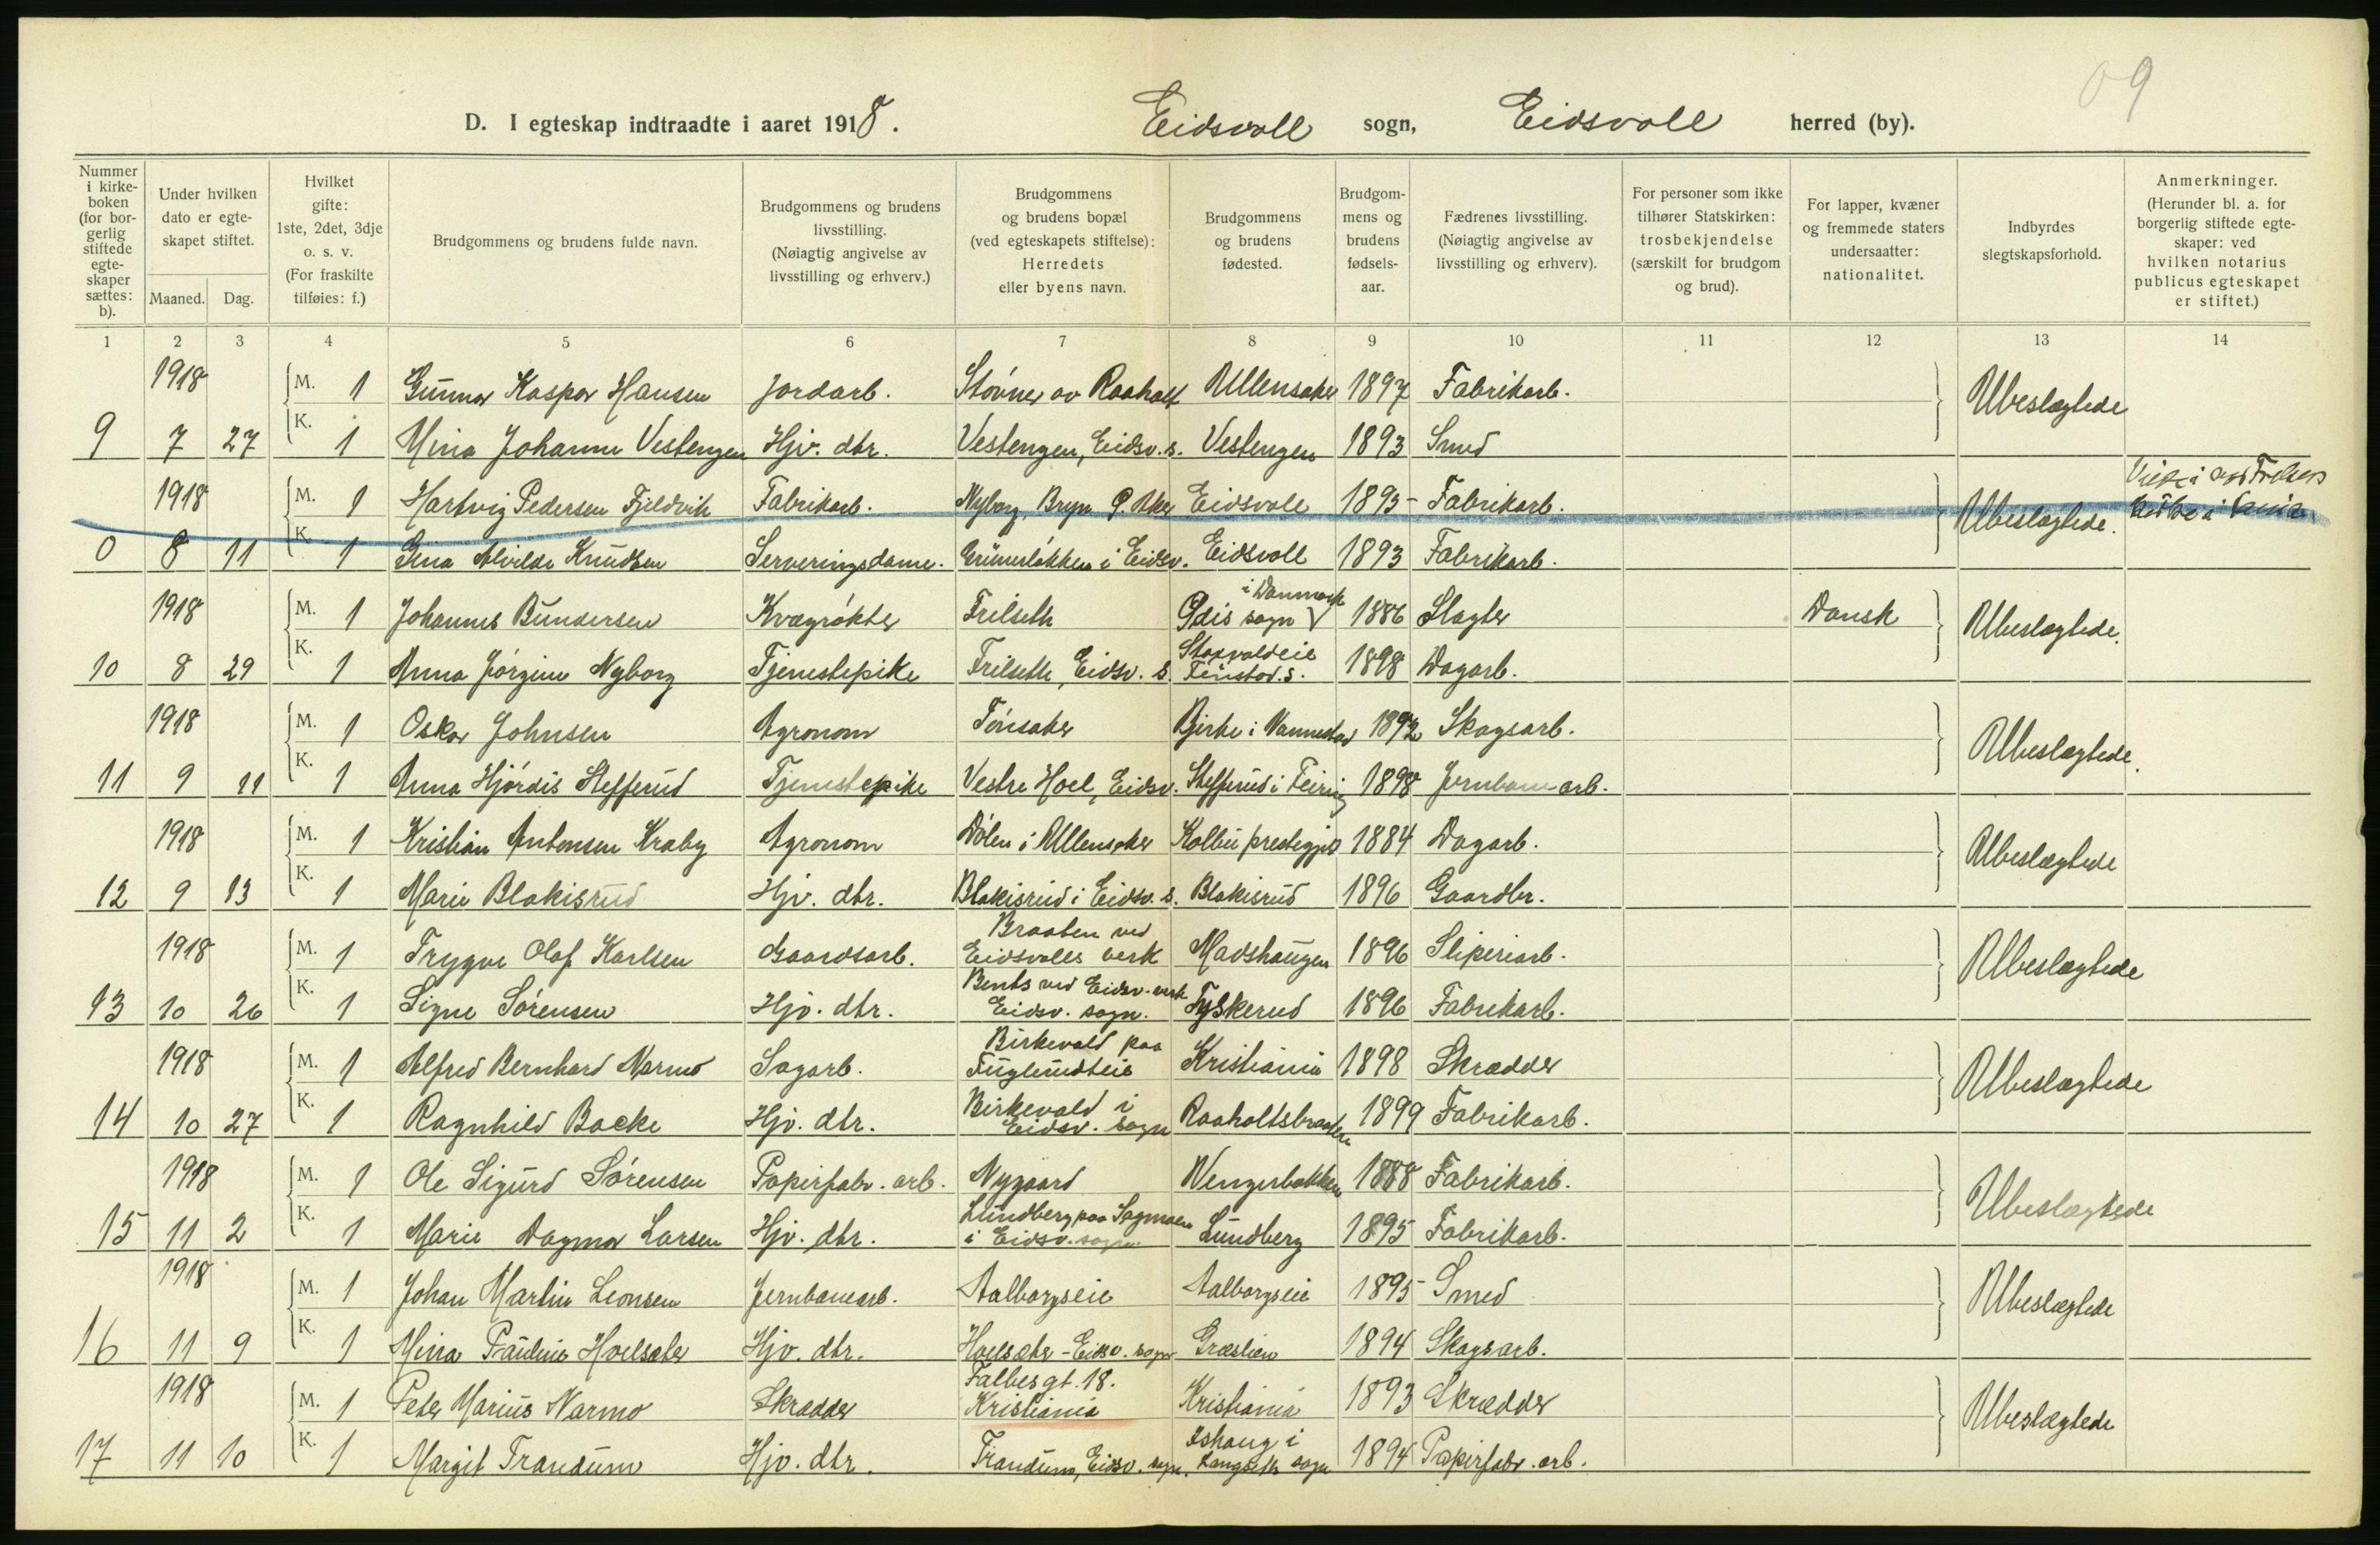 09
D. I egteskap indtraadte i aaret 1918. Eidsvoll sogn, Eidsvoll herred (by).
Nummer i kirke-boken (for bor-gerlig stiftede egte-skaper sættes: b).
Under hvilken dato er egte-skapet stiftet.
Maaned. Dag.
Hvilket gifte: 1ste, 2det, 3dje o. s. v. (For fraskilte tilføies: f.)
Brudgommens og brudens fulde navn.
Brudgommens og brudens livsstilling. (Nøiagtig angivelse av livsstilling og erhverv.)
Brudgommens og brudens bopæl (ved egteskapets stiftelse): Herredets eller byens navn.
Brudgommens og brudens fødested.
Brudgom-mens og brudens fødsels-aar.
Fædrenes livsstilling. (Nøiagtig angivelse av livsstilling og erhverv).
For personer som ikke tilhører Statskirken: trosbekjendelse (særskilt for brudgom og brud).
For lapper, kvæner og fremmede staters undersaatter: nationalitet.
Indbyrdes slegtskapsforhold.
Anmerkninger. (Herunder bl. a. for borgerlig stiftede egte-skaper: ved hvilken notarius publicus egteskapet er stiftet.)
1 2 3 4 5 6 7 8 9 10 11 12 13 14
1918 M. 1 Gunnar Kaspar Hansen Jordarb. Støvner av Raaholt Ullensaker 1897 Fabrikarb. Ubeslægtede
9 7 27 K. 1 Mina Johanne Vestengen Hjv. dtr. Vestengen, Eidsv. s. Vestengen 1893 Smed
1918 M. 1 Hartvig Pedersen Fjeldvik Fabrikarb. Nyborg, Bryn Ø. Aker Eidsvoll 1895 Fabrikarb. Ubeslægtede.
0 8 11 K. 1 Gina Alvilde Knudsen Serveringsdame. Grünerløkken i Eidsv. Eidsvoll 1893 Fabrikarb.
1918 M. 1 Johannes Bundersen Kvægrøkter Frilseth Ødis sogn i Danmark 1886 Slagter Dansk Ubeslægtede.
10 8 29 K. 1 Anna Jørgine Nyborg Tjenestepike Frilseth, Eidsv. s. Finstad. s. 1898 Dagarb.
1918 M. 1 Oskar Johnsen Agronom Tønsaker Bjerke i Nannestad 1892 Skogsarb. Ubeslægtede.
11 9 11 K. 1 Anna Hjørdis Stefferud Tjenestepike Vestre Hoel, Eidsv. Stefferud i Feiring 1898 Jernbanearb.
1918 M. 1 Kristian Antonsen Kraby Agronom Dølen i Ullensaker Kolbu prestegjeld 1884 Dagarb. Ubeslægtede
12 9 13 K. 1 Marie Blakisrud Hjv. dtr. Blakisrud i Eidsv. s. Blakisrud 1896 Gaardbr.
1918 M. 1 Trygve Olaf Karlsen Gaardsarb. Braaten ved Eidsvolls verk Madshaugen 1896 Sliperiarb. Ubeslægtede
13 10 26 K. 1 Signe Sørensen Hjv. dtr. Bents ved Eidsv. verk Eidsv. sogn. Tyskerud 1896 Fabrikarb.
1918 M. 1 Alfred Bernhard Narmo Sagarb. Birkevold paa Fuglerudteie Kristiania 1898 Skrædder Ubeslægtede
14 10 27 K. 1 Ragnhild Bakke Hjv. dtr. Birkevold i Eidsv. sogn Raaholtsbraaten 1899 Fabrikarb.
1918 M. 1 Ole Sigurd Sørensen Papirfabr. arb. Nygaard Wengerbakken 1888 Fabrikarb. Ubeslægtede
15 11 2 K. 1 Marie Dagmar Larsen Hjv. dtr. Lundberg paa Sagmoen i Eidsv. sogn. Lundberg 1895 Fabrikarb.
1918 M. 1 Johan Martin Leonsen Jernbanearb. Aalborgseie Aalborgseie 1895 Smed Ubeslægtede
16 11 9 K. 1 Mina Pauline Hoelsæter Hjv. dtr. Hoelsæter - Eidsv. sogn Græslien 1894 Skogsarb.
1918 M. 1 Peter Marius Narmo Skrædder Falbes gt. 18. Kristiania Kristiania 1893 Skrædder Ubeslægtede
17 11 10 K. 1 Margit Trandum Hjv. dtr. Trandum, Eidsv. sogn. Ishaug i Langseth sogn 1894 Papirfabr. arb.